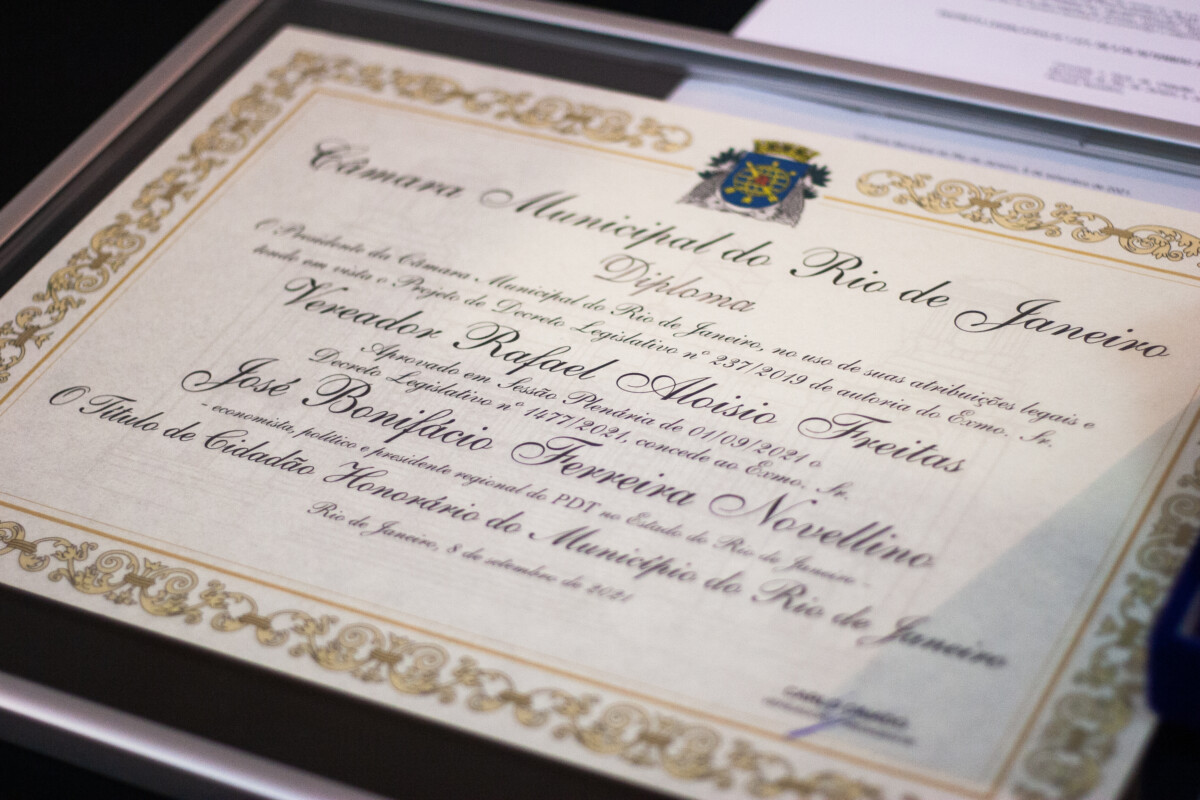 Câmara Municipal do Rio de Janeiro
Diploma
O Presidente da Câmara Municipal do Rio de Janeiro, no uso de suas atribuições legais e
tendo em vista o Projeto de Decreto Legislativo nº 237/2019 de autoria do Exmo. Sr.
Vereador Rafael Aloisio Freitas
Aprovado em Sessão Plenária de 01/09/2021 o
Decreto Legislativo nº 1477/2021, concede ao Exmo. Sr.
José Bonifácio Ferreira Novellino
- economista, político e presidente regional do PDT no Estado do Rio de Janeiro -
O Título de Cidadão Honorário do Município do Rio de Janeiro
Rio de Janeiro, 8 de setembro de 2021